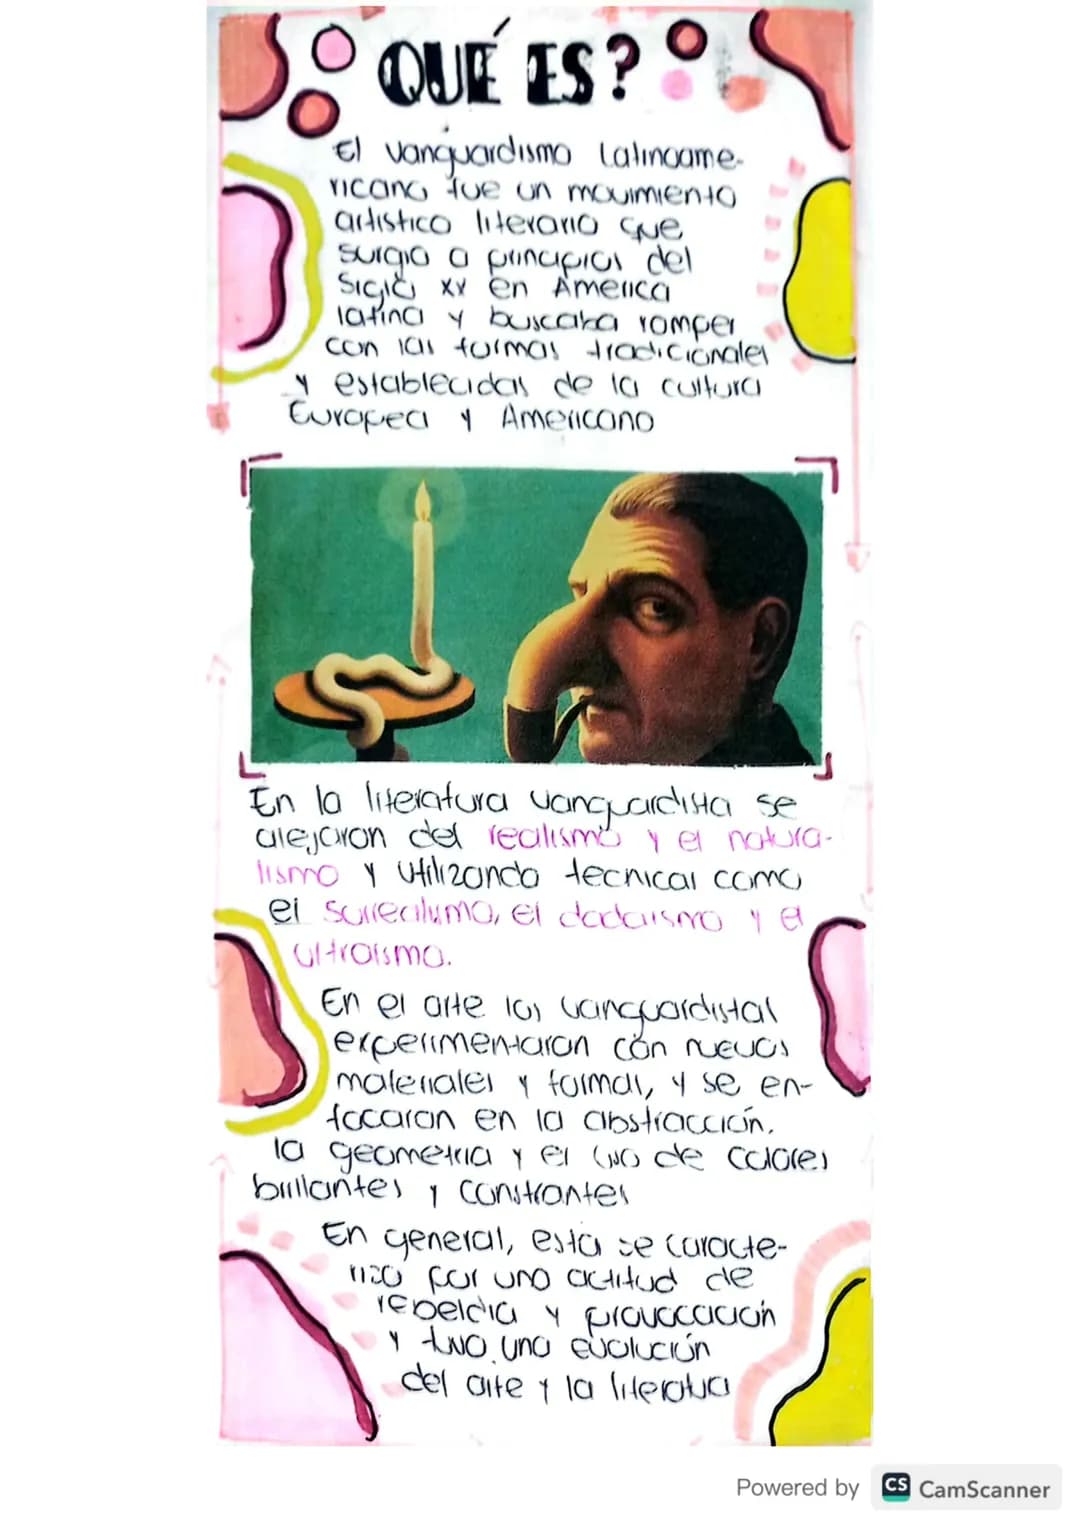 QUÉ ES?
El vanguardismo latinoame-
ricano fue un movimiento
artistico literario que
surgio a principios del
Siglo XX en America
latina y buscaba romper
con las formas tradicionales
y establecidas de la cultura
Europea y Americano
En la literatura vanguardista se
alejaron del realismo y el natura-
lismo y utilizando tecnicas como
el surrealismo, el dadaismo y el
ultraismo.
En el arte los vanguardistas
experimentaron con nuevos
materiales y formas, y se en-
focaron en la abstracción,
la geometria y el uso de colores
brillantes y constrantes
En general, esta se caracte-
rizo por una actitud de
rebeldia y provocación
y tuvo una evolución
del arte y la literatua
Powered by CS CamScanner